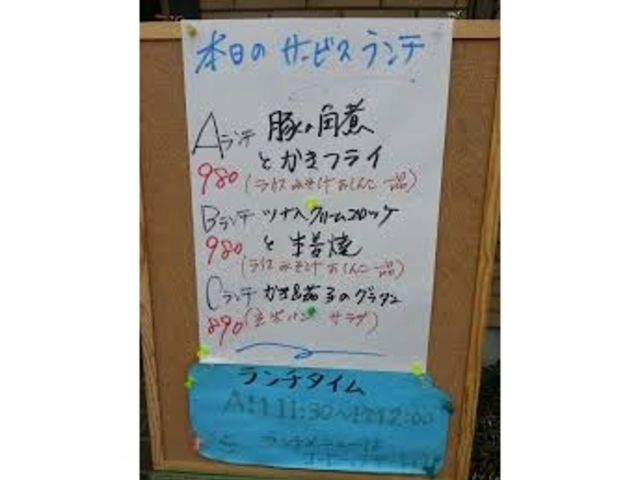 本日のサービスランチ
Aランチ 豚の角煮
とかきフライ
980 (ライス みそ汁 おしんこ 一品)
Bランチ ツナ入クリームコロッケ
980 と 生姜焼
(ライス みそ汁 おしんこ 一品)
Cランチ かき&茄子のグラタン
890 (玄米パン サラダ)
ランチタイム
AM 11:30～PM 2:00